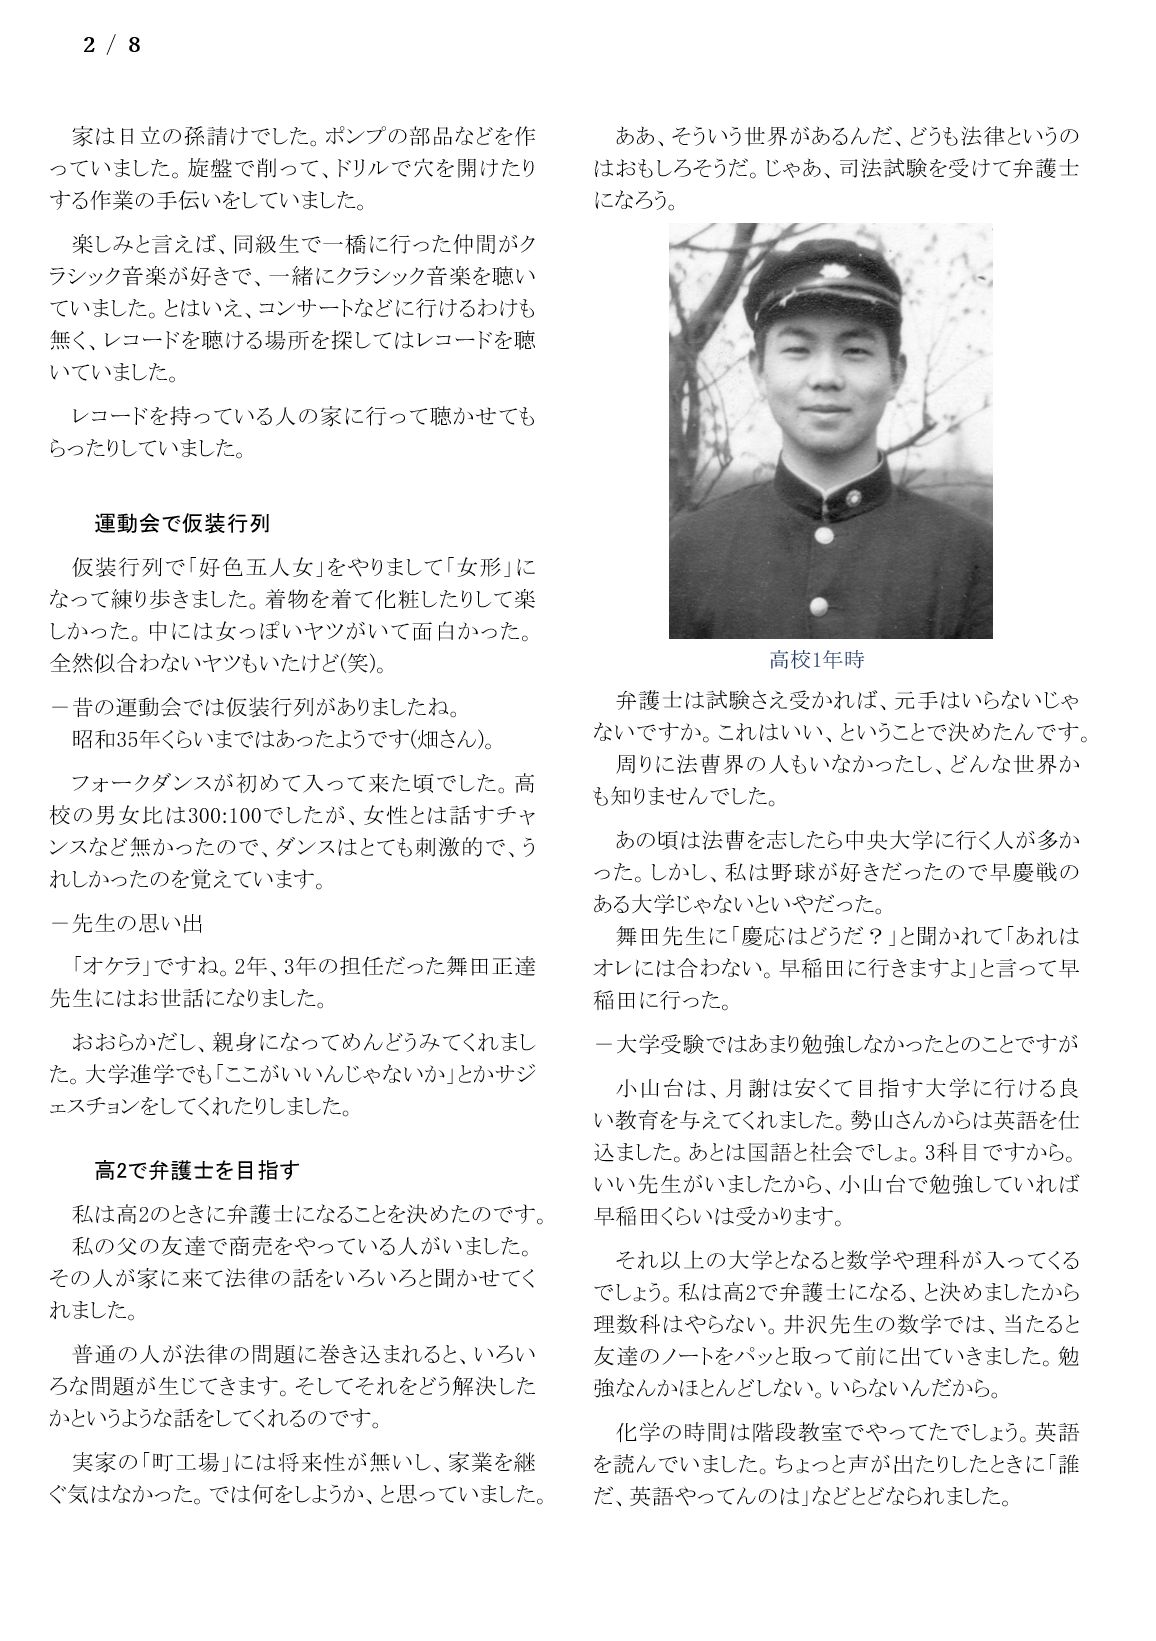 2 / 8
家は日立の孫請けでした。ポンプの部品などを作
っていました。旋盤で削って、ドリルで穴を開けたり
する作業の手伝いをしていました。
楽しみと言えば、同級生で一橋に行った仲間がク
ラシック音楽が好きで、一緒にクラシック音楽を聴い
ていました。とはいえ、コンサートなどに行けるわけも
無く、レコードを聴ける場所を探してはレコードを聴
いていました。
レコードを持っている人の家に行って聴かせても
らったりしていました。
運動会で仮装行列
仮装行列で「好色五人女」をやりまして「女形」に
なって練り歩きました。着物を着て化粧したりして楽
しかった。中には女っぽいヤツがいて面白かった。
全然似合わないヤツもいたけど(笑)。
－昔の運動会では仮装行列がありましたね。
昭和35年くらいまではあったようです(畑さん)。
フォークダンスが初めて入って来た頃でした。高
校の男女比は300:100でしたが、女性とは話すチャ
ンスなど無かったので、ダンスはとても刺激的で、う
れしかったのを覚えています。
－先生の思い出
「オケラ」ですね。2年、3年の担任だった舞田正達
先生にはお世話になりました。
おおらかだし、親身になってめんどうみてくれまし
た。大学進学でも「ここがいいんじゃないか」とかサジ
ェスチョンをしてくれたりしました。
高2で弁護士を目指す
私は高2のときに弁護士になることを決めたのです。
私の父の友達で商売をやっている人がいました。
その人が家に来て法律の話をいろいろと聞かせてく
れました。
普通の人が法律の問題に巻き込まれると、いろい
ろな問題が生じてきます。そしてそれをどう解決した
かというような話をしてくれるのです。
実家の「町工場」には将来性が無いし、家業を継
ぐ気はなかった。では何をしようか、と思っていました。
ああ、そういう世界があるんだ、どうも法律というの
はおもしろそうだ。じゃあ、司法試験を受けて弁護士
になろう。
高校1年時
弁護士は試験さえ受かれば、元手はいらないじゃ
ないですか。これはいい、ということで決めたんです。
周りに法曹界の人もいなかったし、どんな世界か
も知りませんでした。
あの頃は法曹を志したら中央大学に行く人が多か
った。しかし、私は野球が好きだったので早慶戦の
ある大学じゃないといやだった。
舞田先生に「慶応はどうだ？」と聞かれて「あれは
オレには合わない。早稲田に行きますよ」と言って早
稲田に行った。
－大学受験ではあまり勉強しなかったとのことですが
小山台は、月謝は安くて目指す大学に行ける良
い教育を与えてくれました。勢山さんからは英語を仕
込ました。あとは国語と社会でしょ。3科目ですから。
いい先生がいましたから、小山台で勉強していれば
早稲田くらいは受かります。
それ以上の大学となると数学や理科が入ってくる
でしょう。私は高2で弁護士になる、と決めましたから
理数科はやらない。井沢先生の数学では、当たると
友達のノートをパッと取って前に出ていきました。勉
強なんかほとんどしない。いらないんだから。
化学の時間は階段教室でやってたでしょう。英語
を読んでいました。ちょっと声が出たりしたときに「誰
だ、英語やってんのは」などとどなられました。